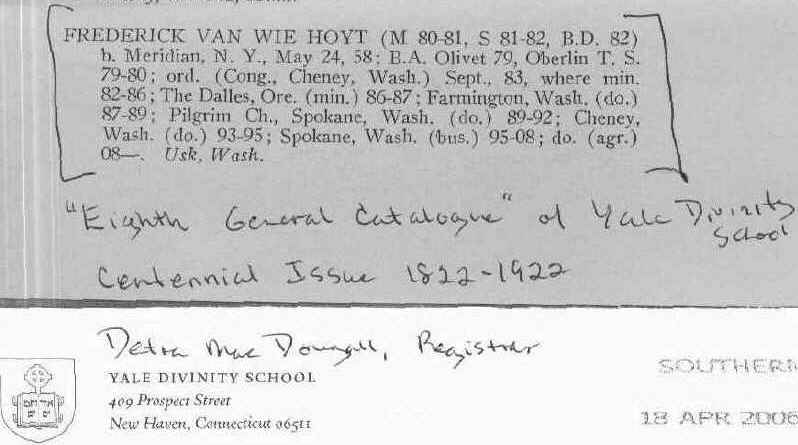 FREDERICK VAN WIE HOYT (M 80-81, S 81-82, B.D. 82)
b. Meridian, N. Y., May 24, 58; B.A. Olivet 79, Oberlin T. S.
79-80; ord. (Cong., Cheney, Wash.) Sept., 83, where min.
82-86; The Dalles, Ore. (min.) 86-87; Farmington, Wash. (do.)
87-89; Pilgrim Ch., Spokane, Wash. (do.) 89-92; Cheney,
Wash. (do.) 93-95; Spokane, Wash. (bus.) 95-08; do. (agr.)
08—. Usk, Wash.
"Eighth General Catalogue" of Yale Divinity
School
Centennial Issue 1822-1922
Mac Dougall, Registrar
YALE DIVINITY SCHOOL
409 Prospect Street
New Haven, Connecticut 06511
SOUTHERN
18 APR 2006